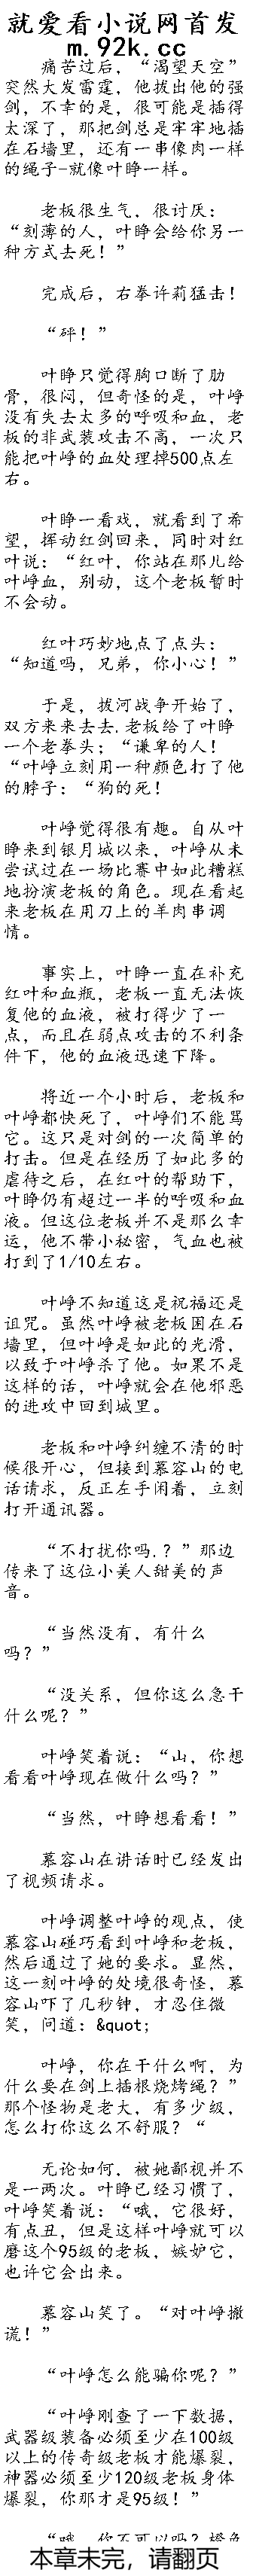 就爱看小说网首发
m.92k.cc
痛苦过后，“渴望天空”
突然大发雷霆，他拔出他的强
剑，不幸的是，很可能是插得
太深了，那把剑总是牢牢地插
在石墙里，还有一串像肉一样
的绳子-就像叶睁一样。
老板很生气，很讨厌：
“刻薄的人，叶睁会给你另一
种方式去死！”
完成后，右拳许莉猛击！
“砰！”
叶睁只觉得胸口断了肋
骨，很闷，但奇怪的是，叶峥
没有失去太多的呼吸和血，老
板的非武装攻击不高，一次只
能把叶峥的血处理掉500点左
右。
叶睁一看戏，就看到了希
望，挥动红剑回来，同时对红
叶说：“红叶，你站在那儿给
叶峥血，别动，这个老板暂时
不会动。
红叶巧妙地点了点头：
“知道吗，兄弟，你小心！”
于是，拔河战争开始了，
双方来来去去.老板给了叶睁
一个老拳头；“谦卑的人！
“叶峥立刻用一种颜色打了他
的脖子：“狗的死！
叶峥觉得很有趣。自从叶
睁来到银月城以来，叶峥从未
尝试过在一场比赛中如此糟糕
地扮演老板的角色。现在看起
来老板在用刀上的羊肉串调
情。
事实上，叶睁一直在补充
红叶和血瓶，老板一直无法恢
复他的血液，被打得少了一
点，而且在弱点攻击的不利条
件下，他的血液迅速下降。
将近一个小时后，老板和
叶峥都快死了，叶峥们不能骂
它。这只是对剑的一次简单的
打击。但是在经历了如此多的
虐待之后，在红叶的帮助下，
叶睁仍有超过一半的呼吸和血
液。但这位老板并不是那么幸
运，他不带小秘密，气血也被
打到了1/10左右。
叶峥不知道这是祝福还是
诅咒。虽然叶峥被老板困在石
墙里，但叶峥是如此的光滑，
以致于叶峥杀了他。如果不是
这样的话，叶峥就会在他邪恶
的进攻中回到城里。
老板和叶峥纠缠不清的时
候很开心，但接到慕容山的电
话请求，反正左手闲着，立刻
打开通讯器。
“不打扰你吗.？”那边
传来了这位小美人甜美的声
音。
“当然没有，有什么
吗？”
“没关系，但你这么急干
什么呢？”
叶峥笑着说：“山，你想
看看叶峥现在做什么吗？”
“当然，叶睁想看看！”
慕容山在讲话时已经发出
了视频请求。
叶峥调整叶峥的观点，使
慕容山碰巧看到叶峥和老板，
然后通过了她的要求。显然，
这一刻叶峥的处境很奇怪，慕
容山吓了几秒钟，才忍住微
笑，问道：&quot;
叶峥，你在干什么啊，为
什么要在剑上插根烧烤绳？”
那个怪物是老大，有多少级，
怎么打你这么不舒服？“
无论如何，被她鄙视并不
是一两次。叶睁已经习惯了，
叶峥笑着说：“哦，它很好，
有点丑，但是这样叶峥就可以
磨这个95级的老板，嫉妒它，
也许它会出来。
慕容山笑了。“对叶峥撒
谎！”
“叶峥怎么能骗你呢？”
“叶峥刚查了一下数据，
武器级装备必须至少在100级
以上的传奇级老板才能爆裂，
神器必须至少120级老板身体
爆裂，你那才是95级！”
本章未完，请翻页